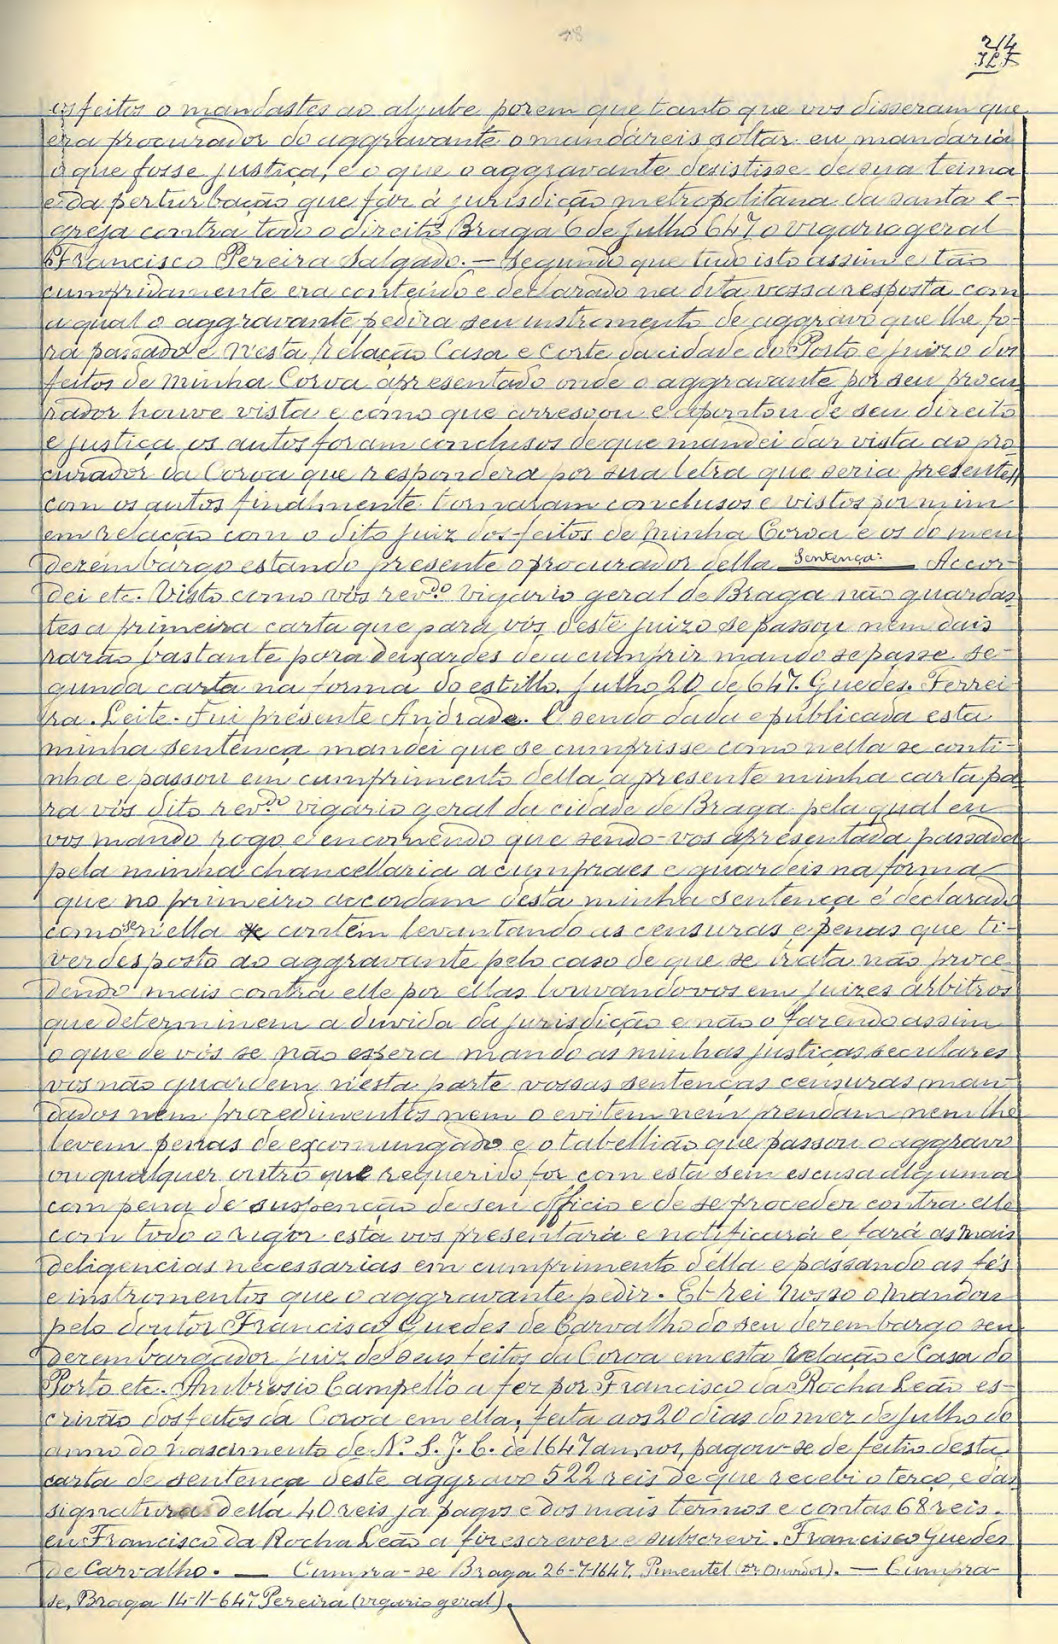 98
214
J.L.F.
os feitos o mandastes ao aljube porem que tanto que vos disseram que
era procurador do aggravante o mandáreis soltar eu mandaria
o que fosse justiça, e o que o aggravante desistisse de sua teima
e da perturbação que faz á jurisdição metropolitana da santa e-
greja contra todo o direito Braga 6 de Julho 647 o vigario geral
Francisco Pereira Salgado. — Segundo que tudo isto assim e tão
cumpridamente era conteúdo e declarado na dita vossa resposta com
a qual o aggravante pedira seu instromento de aggravo que lhe fo-
ra passado e n'esta Relação Casa e Corte da cidade do Porto e juizo dos
feitos de minha Coroa apresentado onde o aggravante por seu procu-
rador houve vista e como que arresoou e apontou de seu direito
e justiça os autos foram conclusos de que mandei dar vista ao pro
curador da Coroa que respondera por sua letra que seria presente
com os autos finalmente tornaram conclusos e vistos por mim
em relação com o dito juiz dos feitos de minha Coroa e os do meu
dezembargo estando presente o procurador della Sentença: Accor-
dei etc. Visto como vós revdo. vigario geral de Braga não guardas-
tes a primeira carta que para vós deste juizo se passou nem dais
razão bastante para deixardes de a cumprir mando se passe se-
gunda carta na forma do estillo. Julho 20 de 647. Guedes. Ferrei-
ra. Leite. Fui presente Andrade. E sendo dada e publicada esta
minha sentença mandei que se cumprisse como nella se conti-
nha e passou em cumprimento della a presente minha carta pa-
ra vós dito revdo. vigario geral da cidade de Braga pela qual eu
vos mando rogo e encomendo que sendo-vos apresentada passada
pela minha chancellaria a cumpraes e guardeis na forma
que no primeiro accordam desta minha sentença é declarado
como se n'ella contêm levantando as censuras e penas que ti-
verdes posto ao aggravante pelo caso de que se trata não proce-
dendo mais contra elle por ellas louvandovos em juizes arbitros
que determinem a duvida da jurisdicção e não o fazendo assim
o que de vós se não espera mando as minhas justiças seculares
vos não guardem n'esta parte vossas sentenças censuras man-
dados nem procedimentos nem o evitem nem prendam nem lhe
levem penas de excomungado e o tabellião que passou o aggravo
ou qualquer outro que requerido for com esta sem escusa alguma
com pena de suspenção de seu officio e de se proceder contra elle
com todo o rigor esta vos presentará e notificará e fará as mais
deligencias necessarias em cumprimento della e passando as fés
e instromentos que o aggravante pedir. El-rei nosso o mandou
pelo doutor Francisco Guedes de Carvalho do seu dezembargo seu
dezembargador juiz de seus feitos da Coroa em esta Relação e Casa do
Porto etc. Ambrosio Campello a fez por Francisco da Rocha Leão es-
crivão dos feitos da Coroa em ella, feita aos 20 dias do mez de Julho do
anno do nascimento de N.º S. J. C. de 1647 annos, pagou-se de feitio desta
carta de sentença deste aggravo 522 reis de que recebi o terço e da as
signatura della 40 reis já pagos e dos mais termos e contas 68 reis.
eu Francisco da Rocha Leão a fiz escrever e subscrevi. Francisco Guedes
de Carvalho. — Cumpra-se Braga 26-7-1647. Pimentel (Dr Ouvidor). — Cumpra-
se, Braga 14-11-647 Pereira (vigario geral).